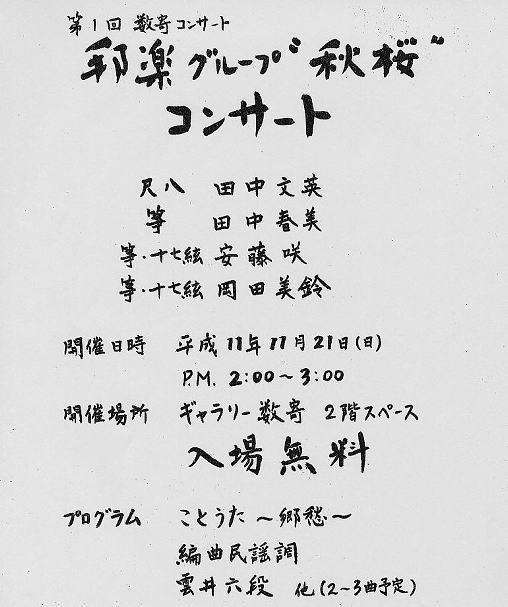 第1回 数寄コンサート
邦楽グループ"秋桜"
コンサート
尺八 田中文英
箏 田中春美
箏・十七絃 安藤咲
箏・十七絃 岡田美鈴
開催日時 平成11年11月21日(日)
P.M. 2:00～3:00
開催場所 ギャラリー数寄 2階スペース
入場無料
プログラム ことうた ～郷愁～
編曲民謡調
雲井六段 他(2～3曲予定)